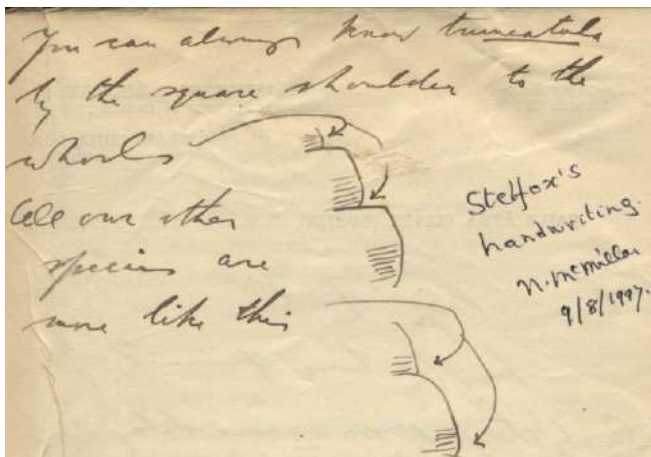 You can always know truncatula
by the square shoulder to the
whorls
All our other
species are
more like this
Stelfox's
handwriting.
N. McMillan
9/8/1997.